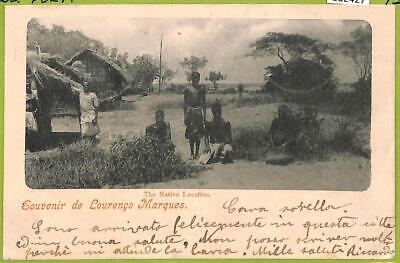 The Native Location.
Souvenir de Lourenço Marques.
Cara sorella.
Sono arrivato felicemente in questa città
ed in buona salute, Non posso scriver molto
perchè mi attende la barca. Mille saluti Riccardo